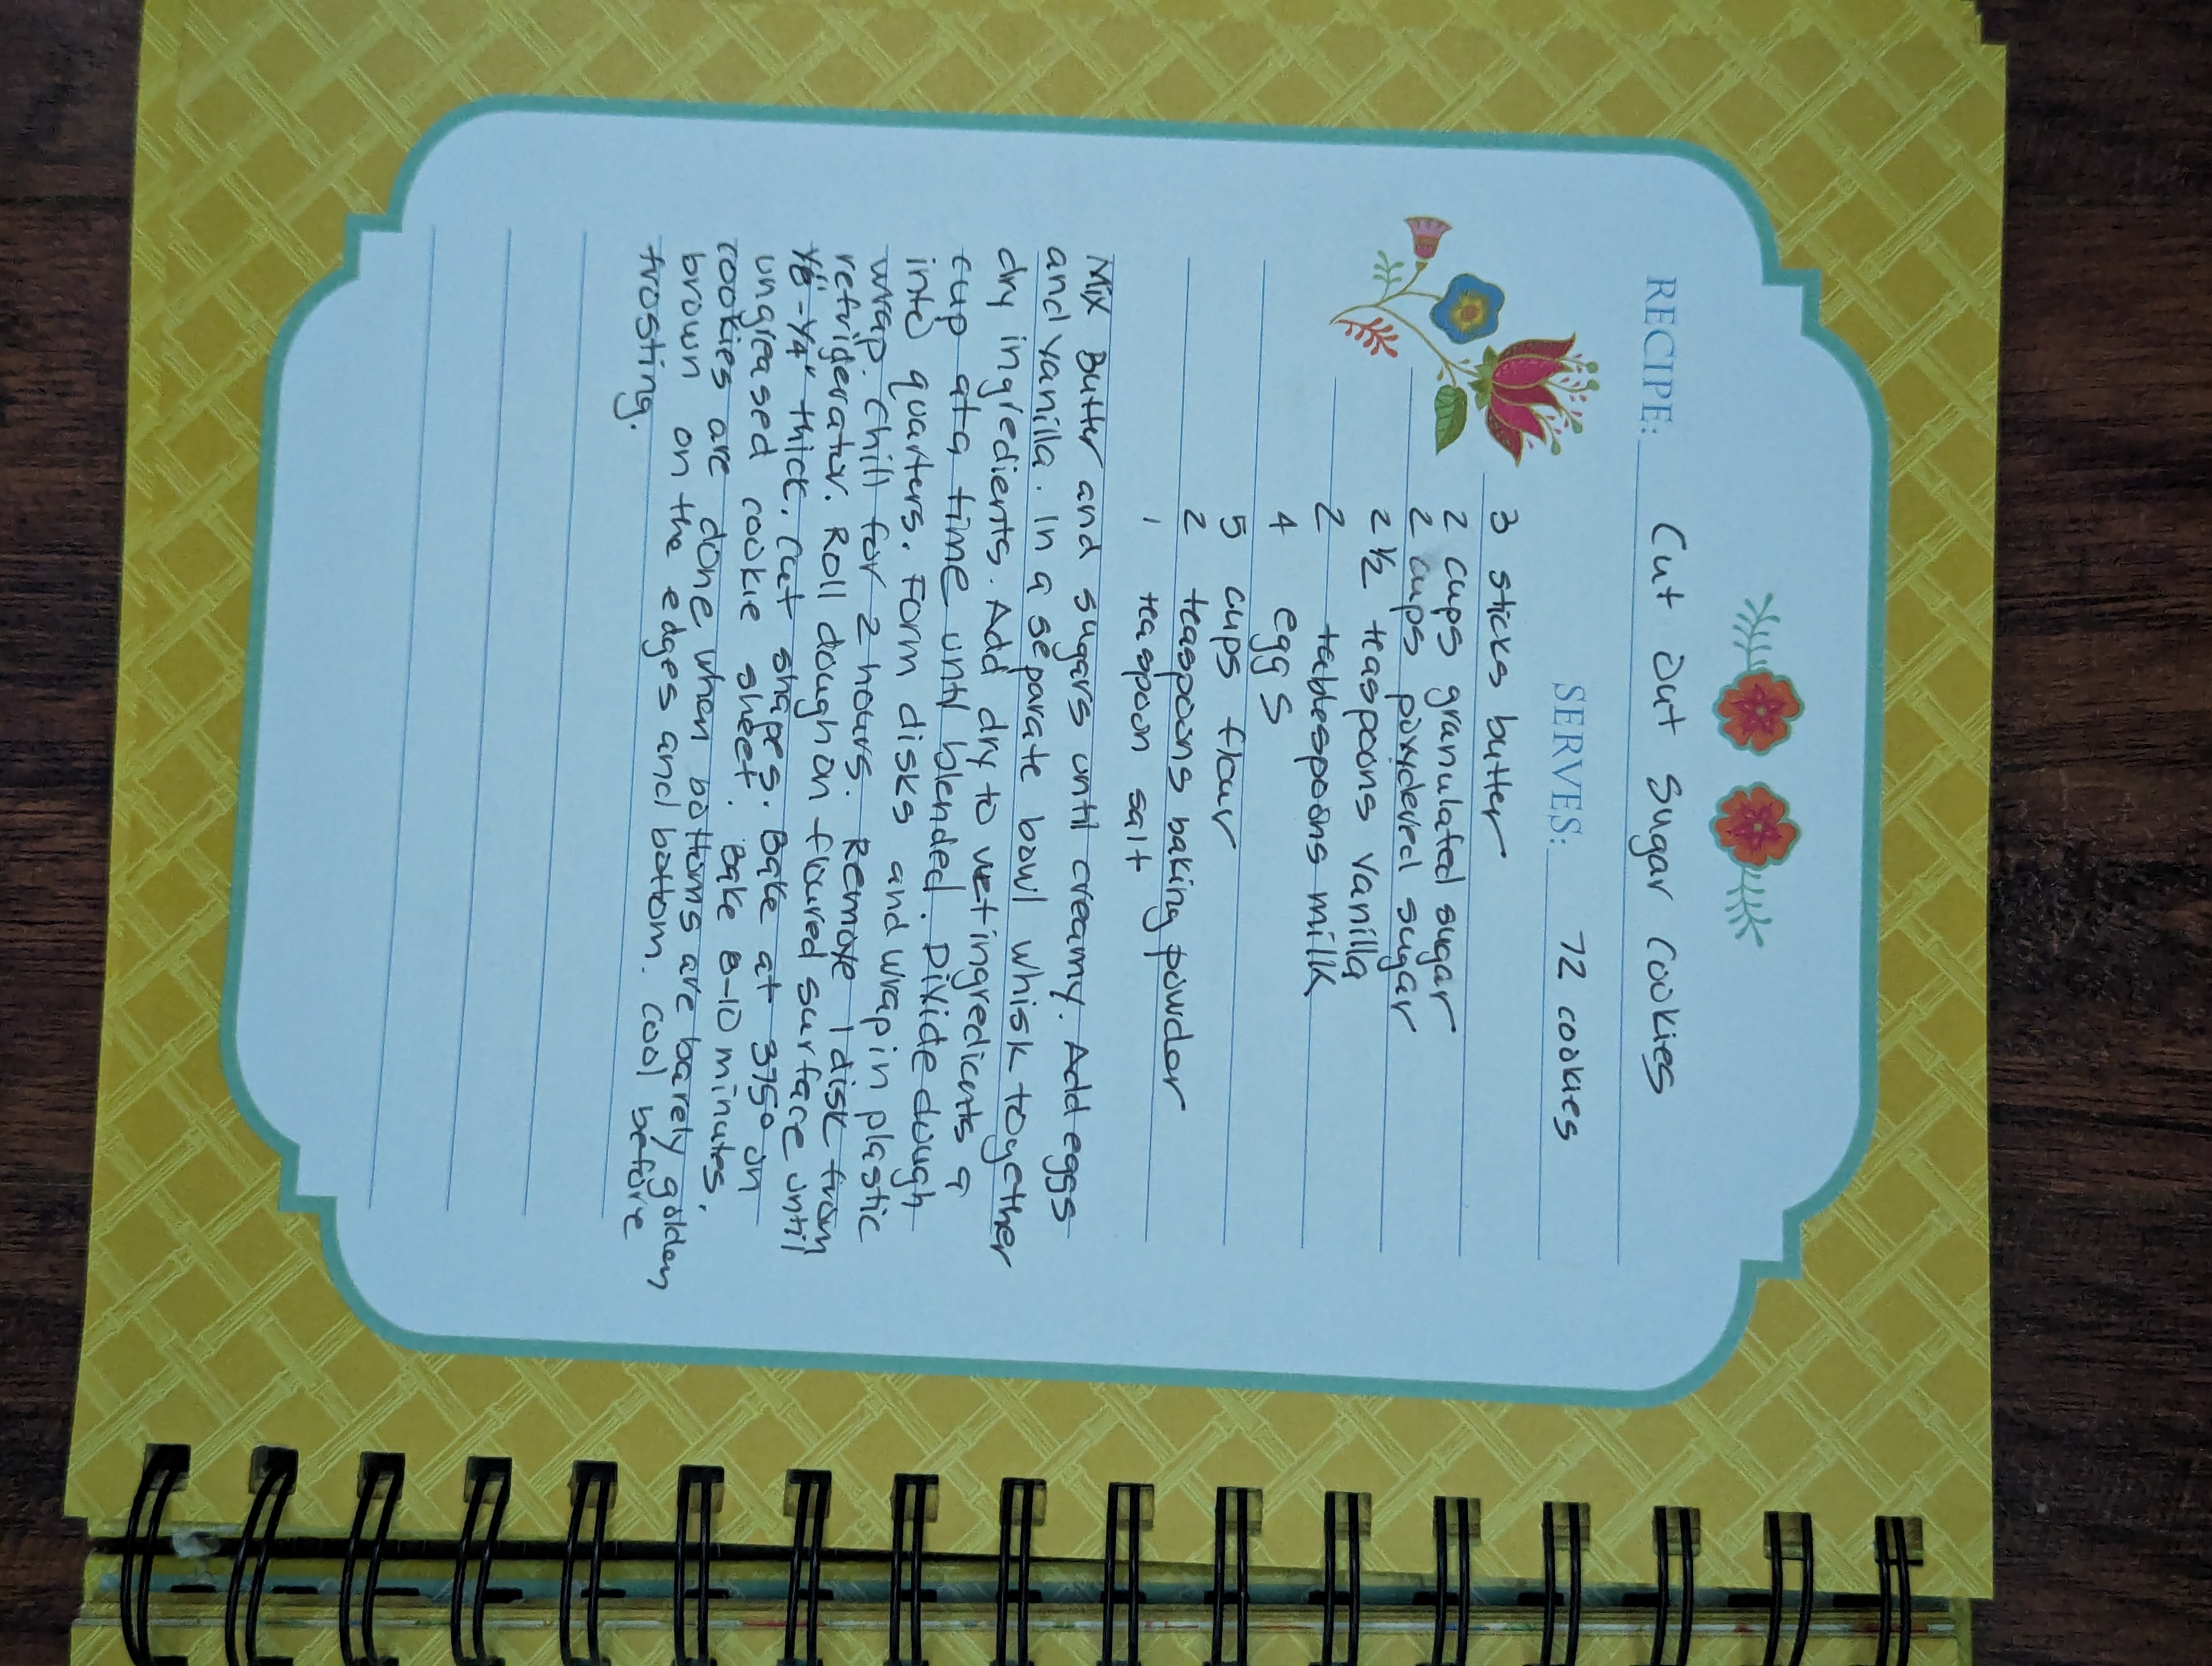 RECIPE: Cut Out Sugar Cookies
SERVES: 72 cookies
3 sticks butter
2 cups granulated sugar
2 cups powdered sugar
2 1/2 teaspoons vanilla
2 tablespoons milk
4 eggs
5 cups flour
2 teaspoons baking powder
1 teaspoon salt
Mix Butter and sugars until creamy. Add eggs
and vanilla. In a separate bowl whisk together
dry ingredients. Add dry to wet ingredients a
cup at a time until blended. Divide dough
into quarters. Form disks and wrap in plastic
wrap. Chill for 2 hours. Remove 1 disk from
refridgerator. Roll dough on floured surface until
1/8"-1/4" thick. Cut shapes. Bake at 375° on
ungreased cookie sheet. Bake 8-10 minutes.
Cookies are done when bottoms are barely golden
brown on the edges and bottom. Cool before
frosting.